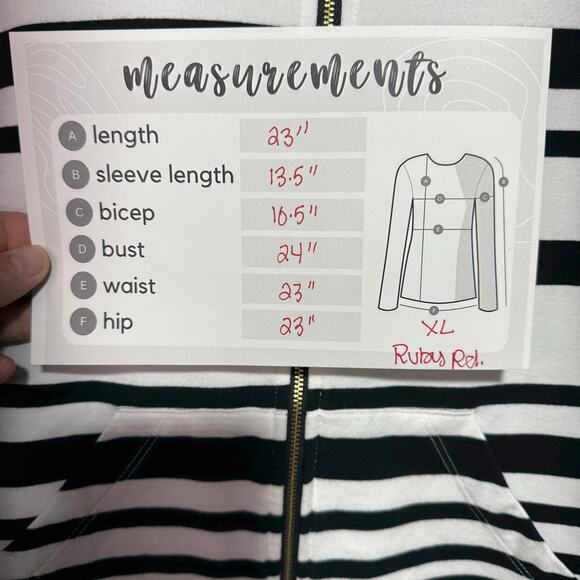 measurements
A length 23"
B sleeve length 13.5"
C bicep 16.5"
D bust 24"
E waist 23"
F hip 23"
A
B
D
C
E
F
XL
Rubys Rd.